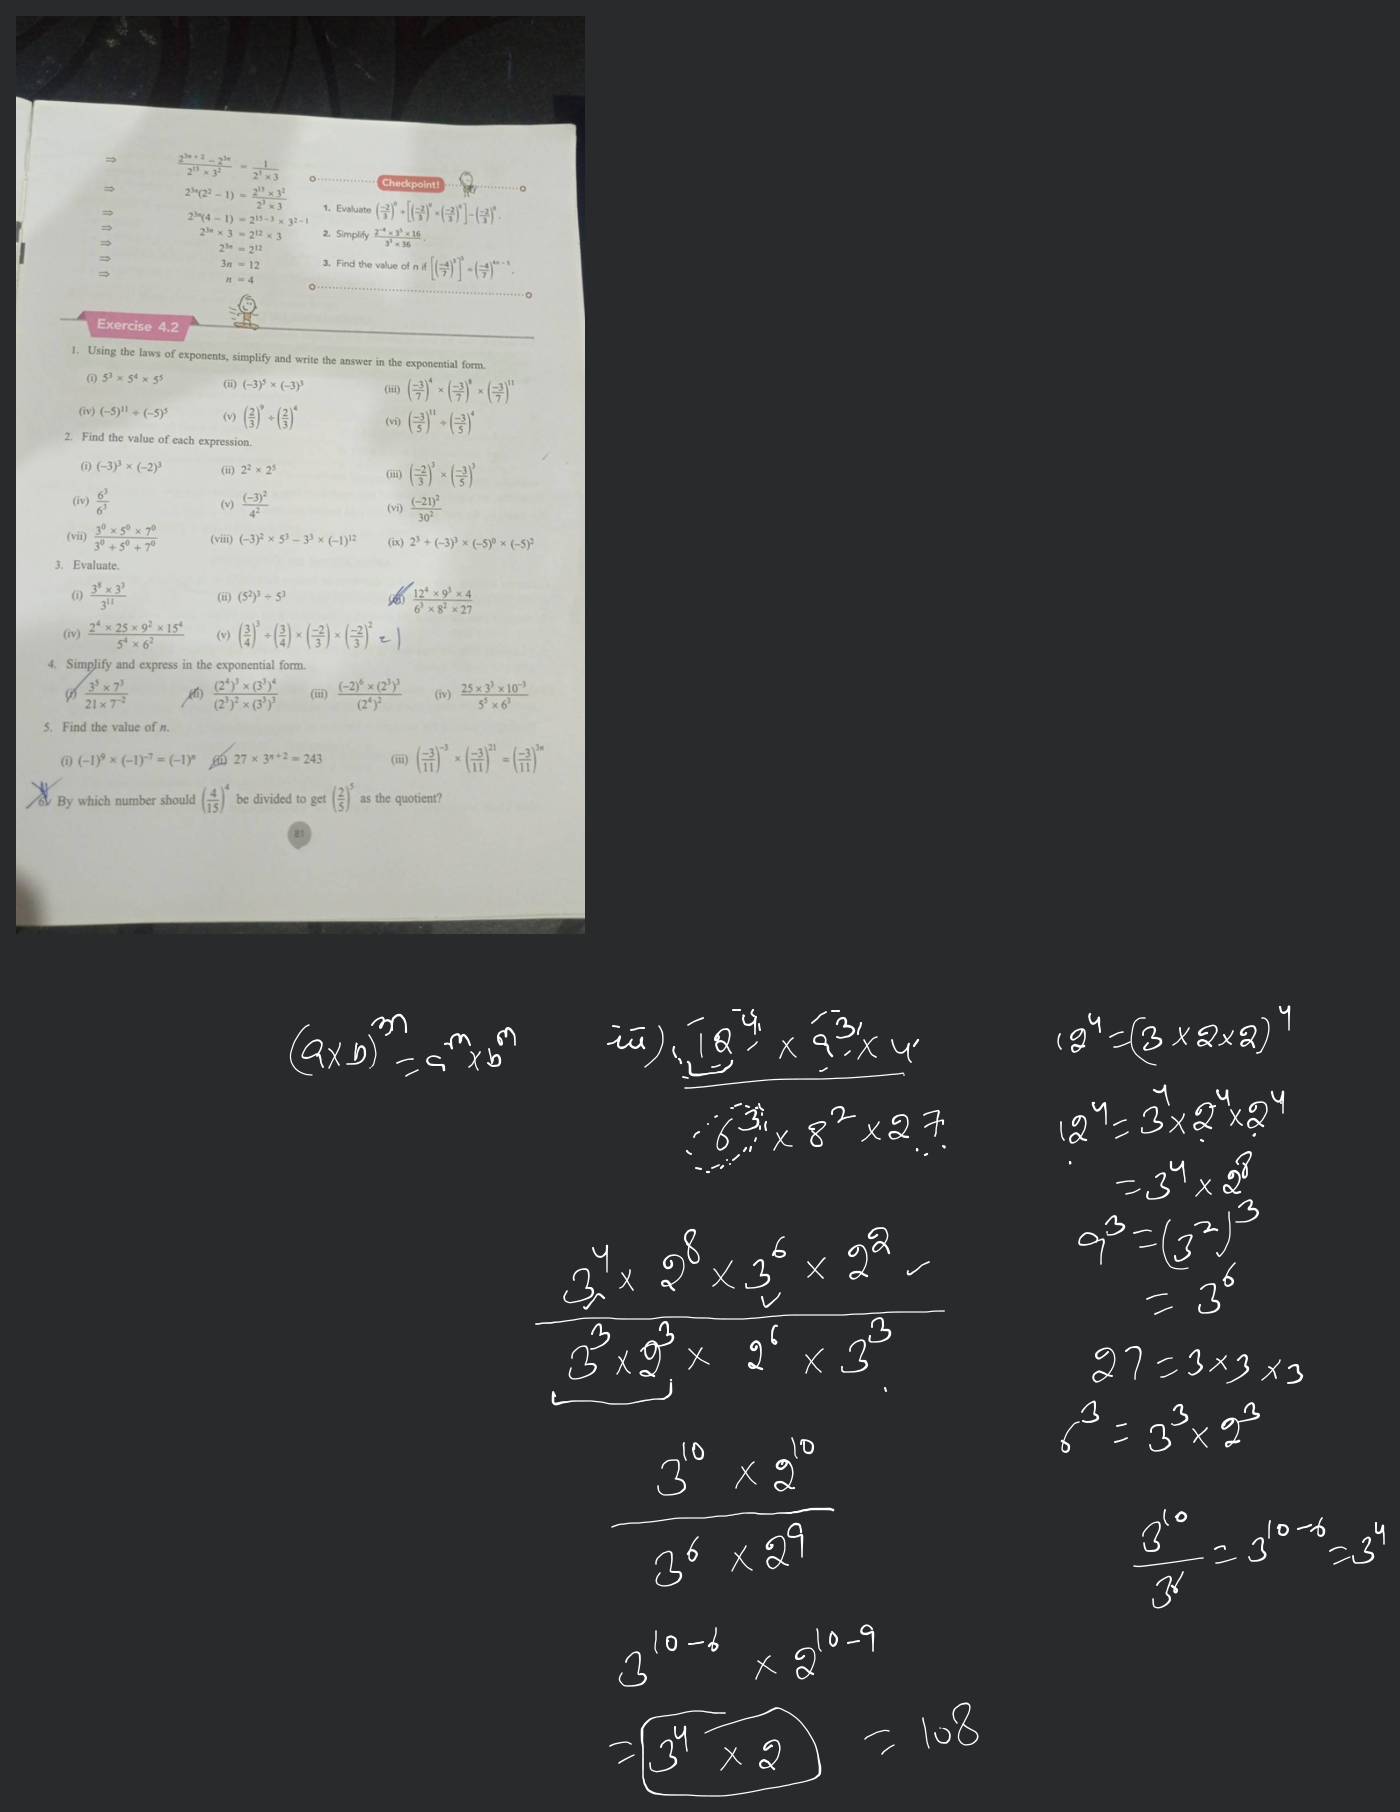 ⇒ (2³ⁿ⁺² − 2³ⁿ)/(2¹⁵ × 3²) = 1/(2³ × 3)
⇒ 2³ⁿ(2² − 1) = (2¹⁵ × 3²)/(2³ × 3)
⇒ 2³ⁿ(4 − 1) = 2¹⁵⁻³ × 3²⁻¹
⇒ 2³ⁿ × 3 = 2¹² × 3
⇒ 2³ⁿ = 2¹²
⇒ 3n = 12
⇒ n = 4
Checkpoint!
1. Evaluate
2. Simplify (2⁻⁴ × 3⁵ × 16)/(3³ × 36).
3. Find the value of n if
Exercise 4.2
1. Using the laws of exponents, simplify and write the answer in the exponential form.
(i) 5³ × 5⁴ × 5⁵ (ii) (−3)⁵ × (−3)³ (iii) (−3/7)⁴ × (−3/7)⁸ × (−3/7)¹¹
(iv) (−5)¹¹ ÷ (−5)⁵ (v) (2/3)⁹ ÷ (2/3)⁴ (vi) (−3/5)¹¹ ÷ (−3/5)⁴
2. Find the value of each expression.
(i) (−3)³ × (−2)³ (ii) 2² × 2⁵ (iii) (−2/3)³ × (−3/5)³
(iv) 6³/6³ (v) (−3)²/4² (vi) (−21)²/30²
(vii) (3⁰ × 5⁰ × 7⁰)/(3⁰ + 5⁰ + 7⁰) (viii) (−3)² × 5³ − 3³ × (−1)¹² (ix) 2³ + (−3)³ × (−5)⁰ × (−5)²
3. Evaluate.
(i) (3⁸ × 3³)/3¹¹ (ii) (5²)³ ÷ 5³ (iii) (12⁴ × 9³ × 4)/(6³ × 8² × 27)
(iv) (2⁴ × 25 × 9² × 15⁴)/(5⁴ × 6²) (v) (3/4)³ ÷ (3/4) × (−2/3) × (−2/3)² = 1
4. Simplify and express in the exponential form.
(i) (3⁵ × 7³)/(21 × 7⁻²) (ii) (2⁴)³ × (3³)⁴/(2³)² × (3³)³ (iii) (−2)⁶ × (2³)³/(2⁴)² (iv) (25 × 3³ × 10⁻³)/(5⁵ × 6³)
5. Find the value of n.
(i) (−1)⁹ × (−1)⁻⁷ = (−1)ⁿ (ii) 27 × 3ⁿ⁺² = 243 (iii) (−3/11)⁻³ × (−3/11)²¹ = (−3/11)³ⁿ
6. By which number should (4/15)⁴ be divided to get (2/5)⁵ as the quotient?
81
(a×b)ᵐ = aᵐ × bᵐ
iii) (12⁴ × 9³ × 4)/(6³ × 8² × 27)
(3⁴ × 2⁸ × 3⁶ × 2²)/(3³ × 2³ × 2⁶ × 3³)
(3¹⁰ × 2¹⁰)/(3⁶ × 2⁹)
3¹⁰⁻⁶ × 2¹⁰⁻⁹
= 3⁴ × 2 = 108
12⁴ = (3 × 2 × 2)⁴
12⁴ = 3⁴ × 2⁴ × 2⁴
= 3⁴ × 2⁸
9³ = (3²)³
= 3⁶
27 = 3 × 3 × 3
6³ = 3³ × 2³
3¹⁰/3⁶ = 3¹⁰⁻⁶ = 3⁴